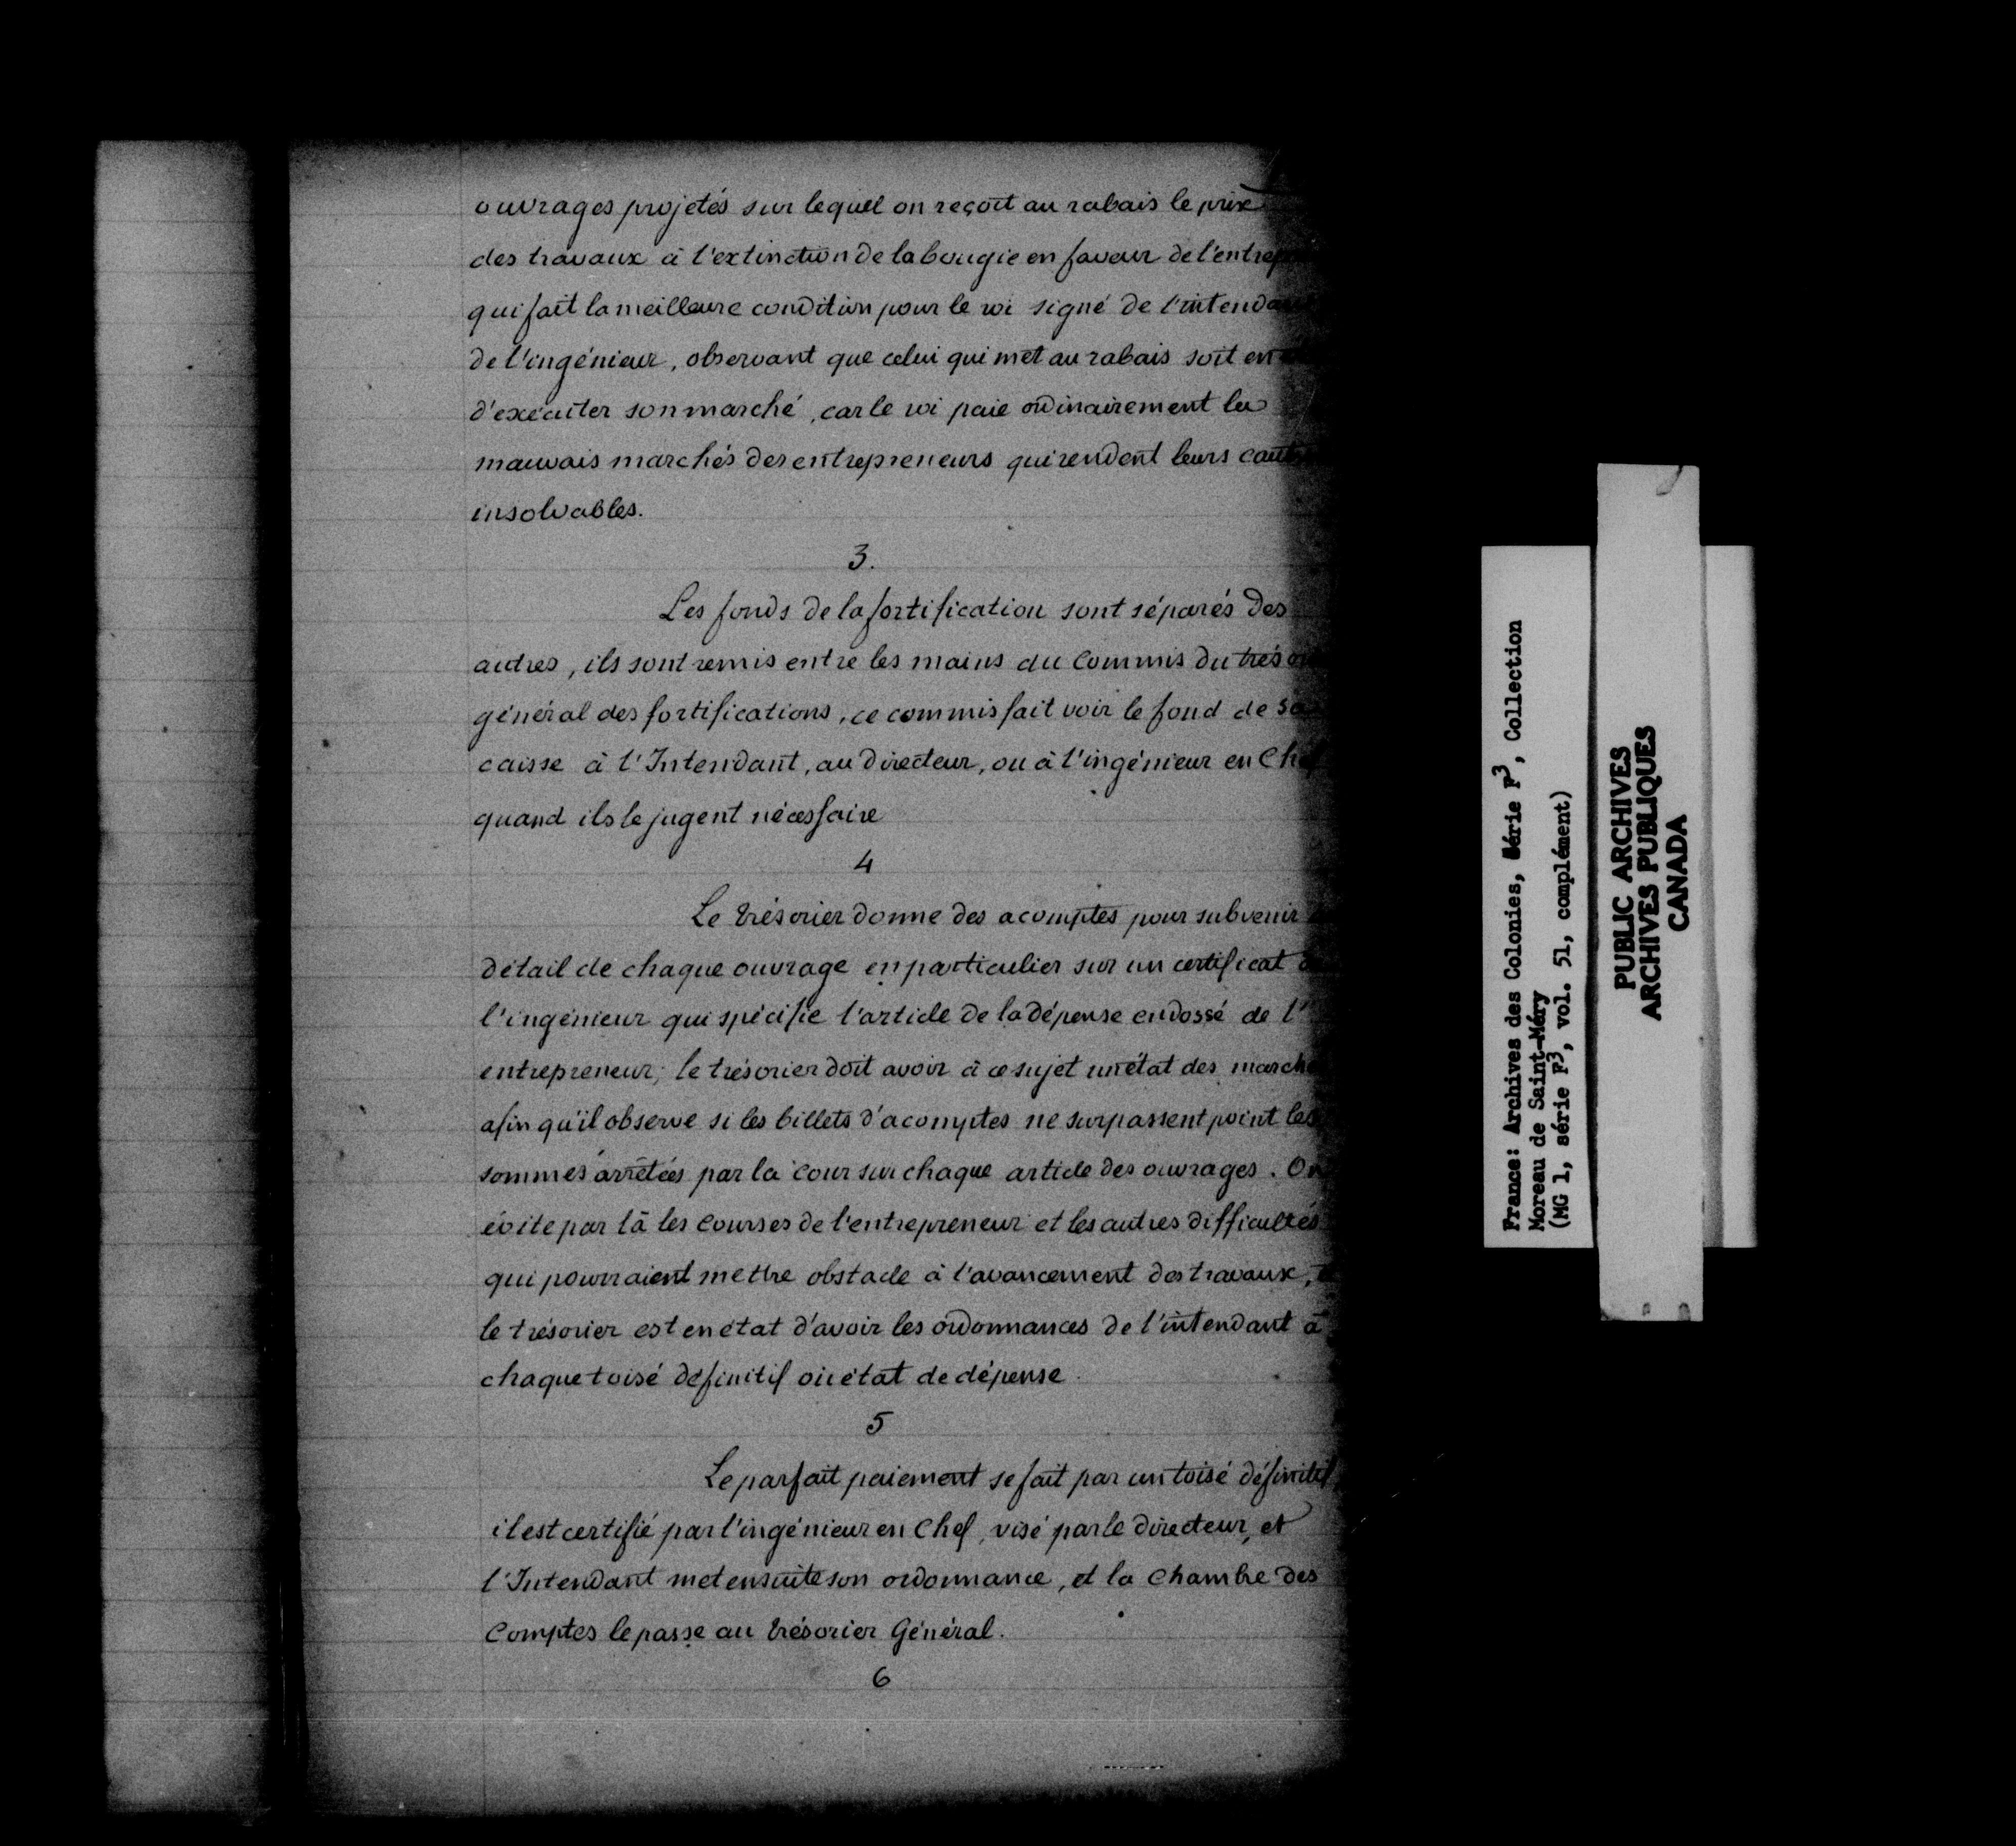 ouvrages projetés sur lequel on reçoit au rabais le prix
des travaux à l'extinction de la bougie en faveur de
qui fait la meilleure condition pour le roi signé de
de l'ingénieur, observant que celui qui met au rabais soit en
d'exécuter son marché, car le roi paie ordinairement les
mauvais marchés des entrepreneurs qui rendent leurs
insolvables.
3.
Les fonds de la fortification sont séparés des
autres, ils sont remis entre les mains du Commis du
général des fortifications, ce commis fait voir le fond de sa
caisse à l'Intendant, au directeur, ou à l'ingénieur en Chef
quand ils le jugent nécessaire
4
Le trésorier donne des acomptes pour subvenir
détail de chaque ouvrage en particulier sur un certificat
l'ingénieur qui spécifie l'article de la dépense endossé de l'
entrepreneur; le trésorier doit avoir à ce sujet un état des
afin qu'il observe si les billets d'acomptes ne surpassent point les
sommes arrêtées par la Cour sur chaque article des ouvrages. On
évite par là les Courses de l'entrepreneur et les autres difficultés
qui pourraient mettre obstacle à l'avancement des travaux,
le trésorier est en état d'avoir les ordonnances de l'intendant à
chaque toisé définitif où état de dépense.
5
Le parfait paiement se fait par un toisé définitif,
il est certifié par l'ingénieur en Chef, visé par le directeur, et
l'Intendant met ensuite son ordonnance, et la Chambre des
Comptes le passe au trésorier Général.
6
France: Archives des Colonies, Série F³, Collection
Moreau de Saint-Méry
(MG 1, série F³, vol. 51, complément)
PUBLIC ARCHIVES
ARCHIVES PUBLIQUES
CANADA